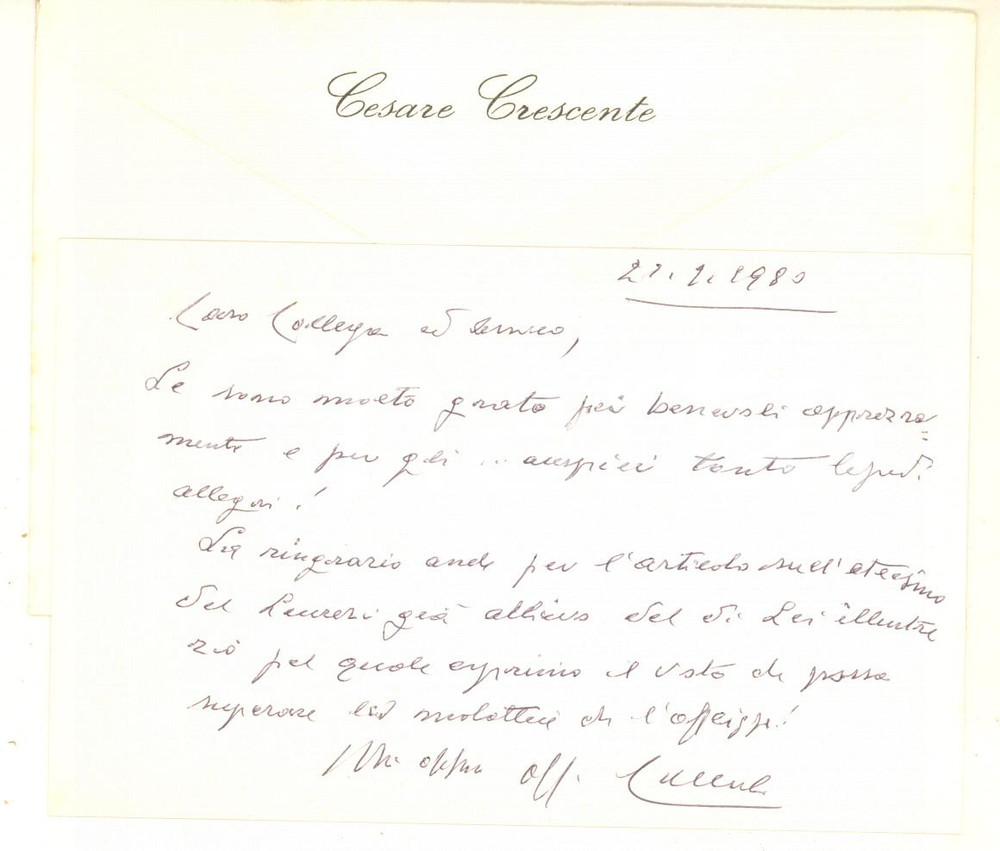 Cesare Crescente
1980
Caro Collega ed Amico,
Le sono molto grato pei benevoli apprezza=
menti e per gli .. auspici tanto
allegri!
La ringrazio anche per l'articolo sull'
del già allievo del di Lei illustre
zio pel quale esprimo il voto che possa
superare la malattia che l'affligge!
off. Crescente